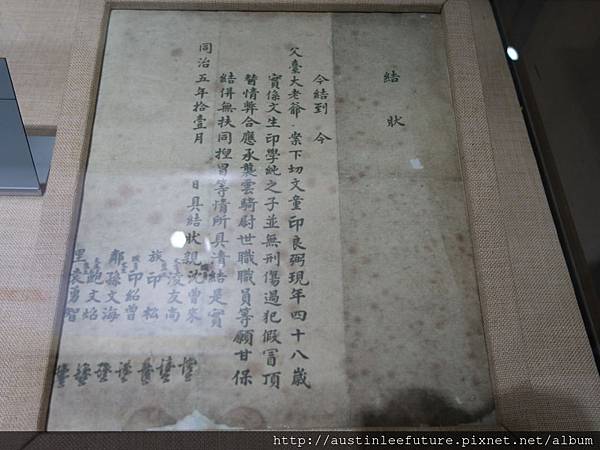 結狀
今結到 今
父臺大老爺 案下切文童印良弼現年四十八歲
實係文生印學純之子並無刑傷過犯假冒頂
替情弊合應承襲雲騎尉世職職員等願甘保
結併無扶同捏冒等情所具清結是實
同治五年拾壹月 日具結狀親沈曾
凌友尚
族 印松
印紹曾
鄰 孫文海
鮑文
里 袁勇智
http://austinleefuture.pixnet.net/album